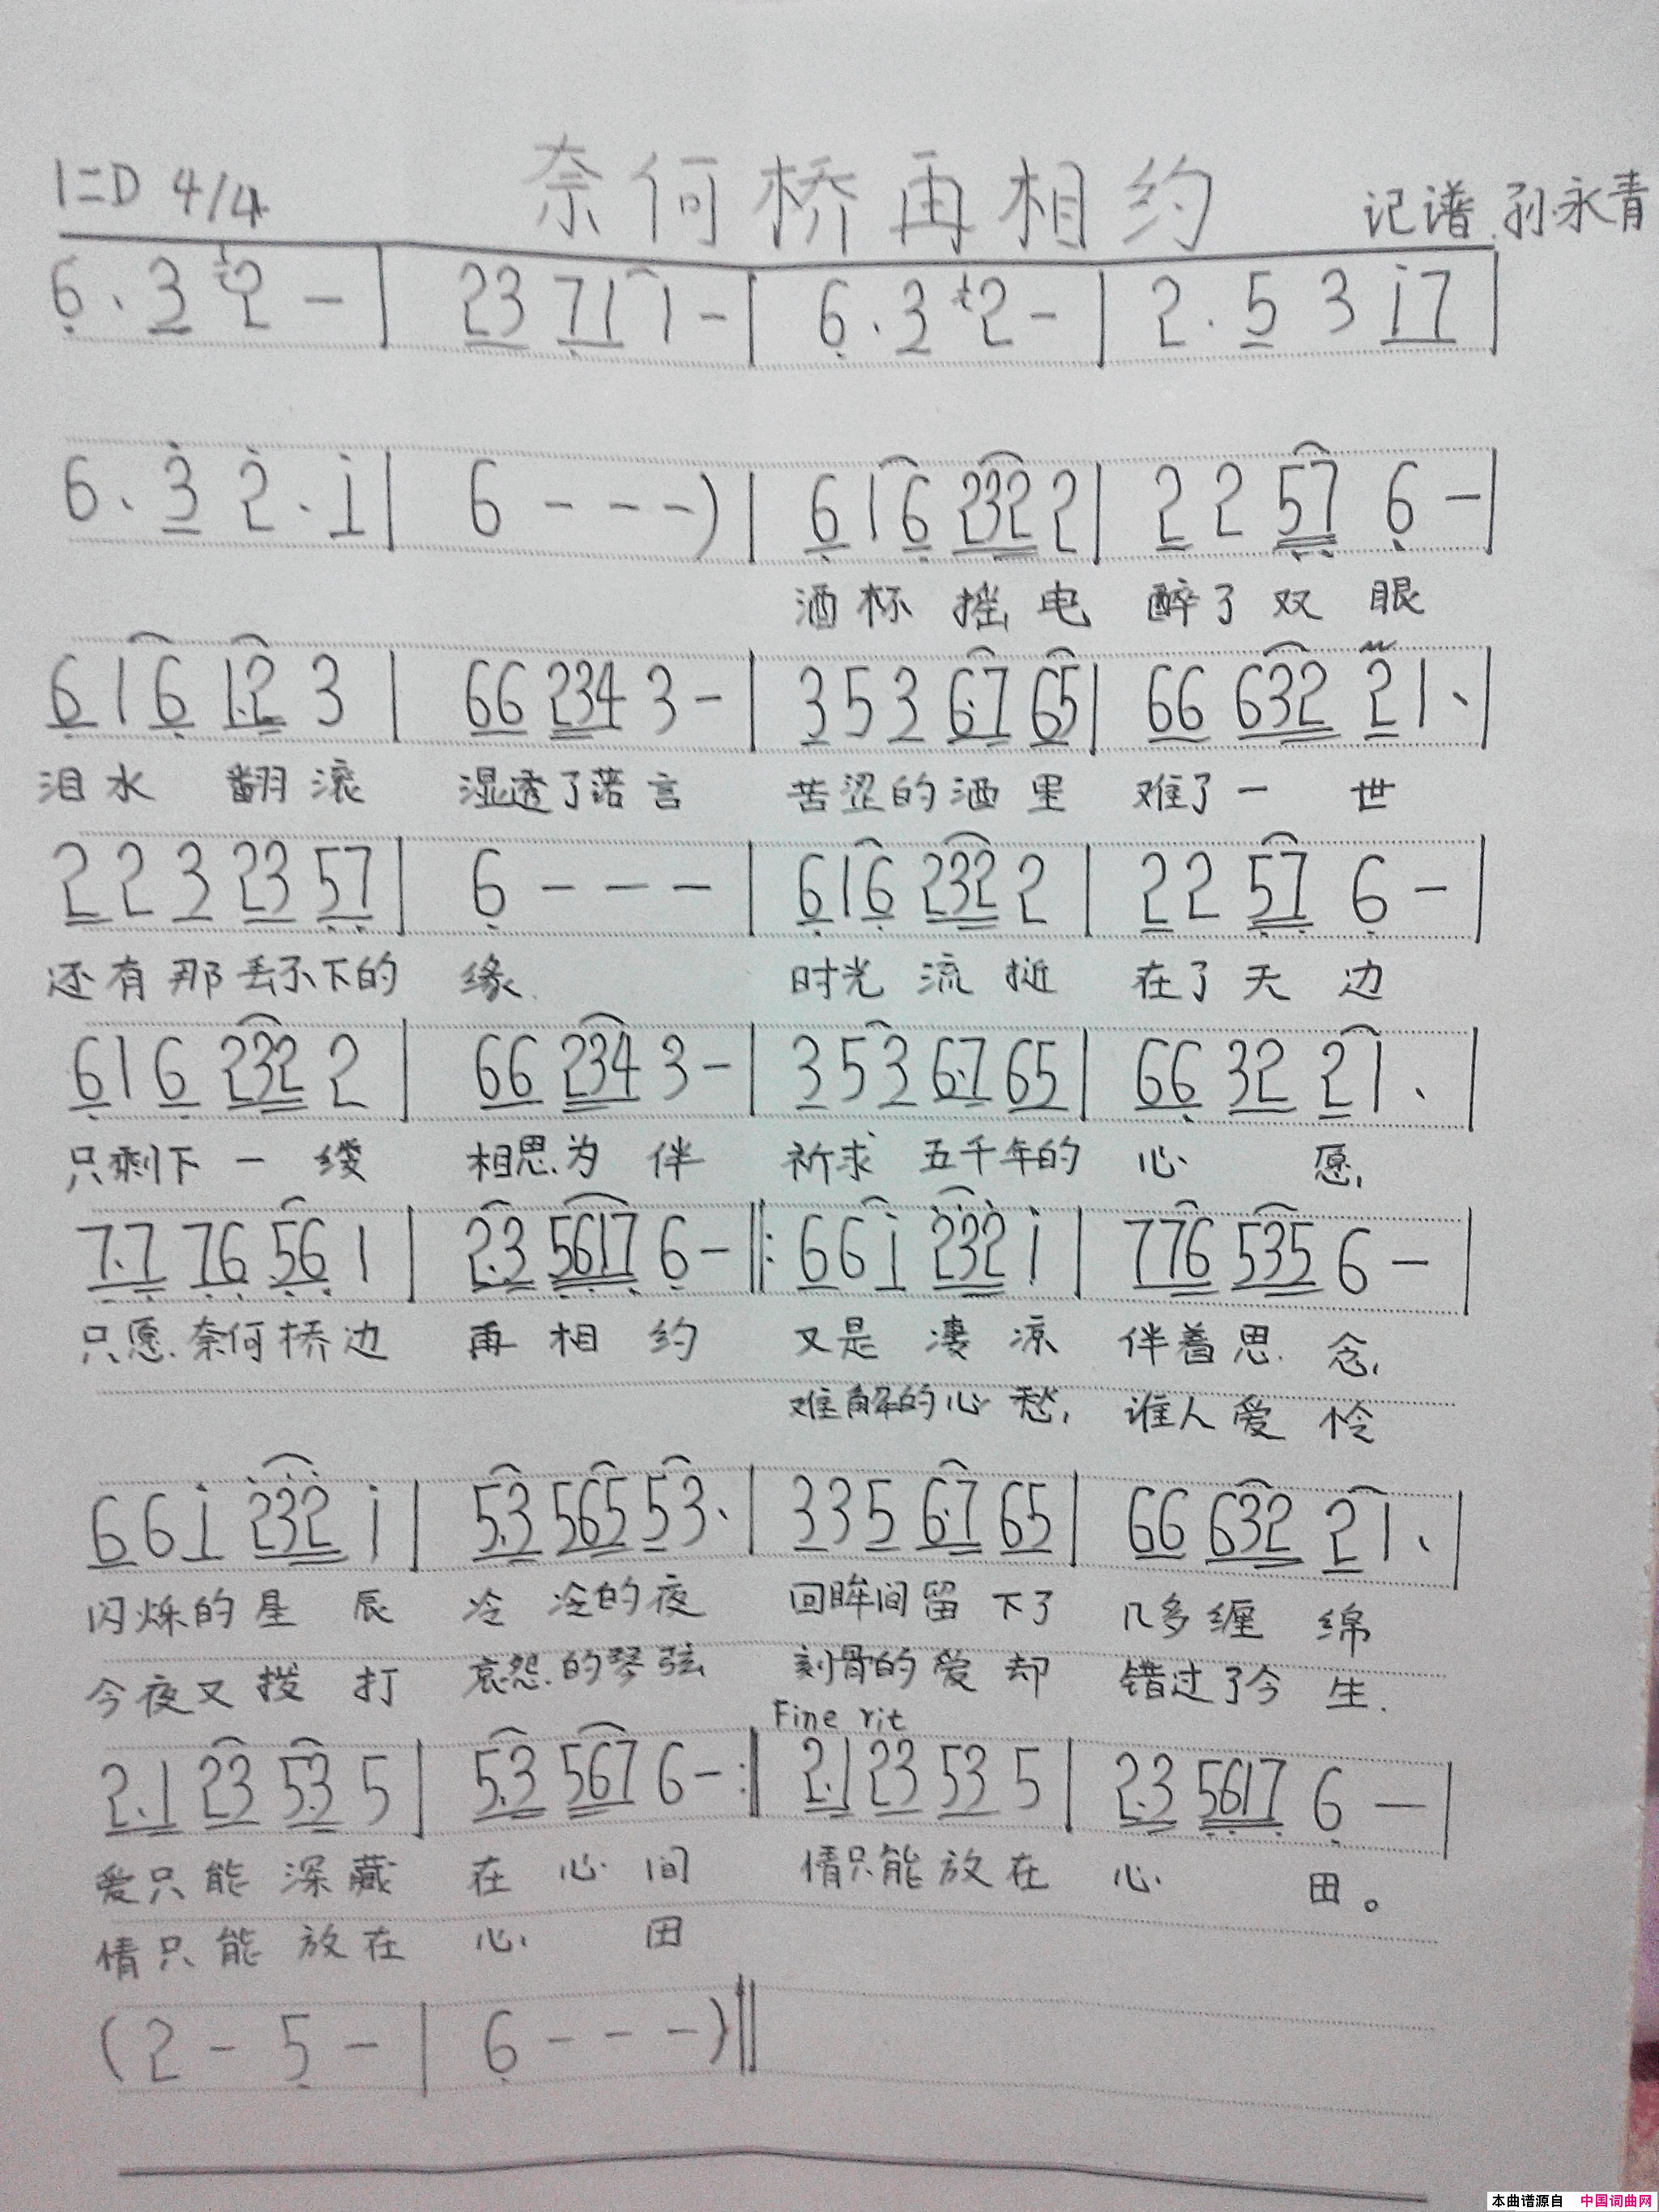 1=D 4/4 奈何桥再相约 记谱.孙永青
6 . 3 2 - | 23 71 1 - | 6 . 3 2 - | 2 . 5 3 i7 |
6 . 3 2 . i | 6 - - - ) | 6 1 6 232 2 | 2 2 57 6 - |
酒杯摇 醉了双眼
6 1 6 1.2 3 | 66 234 3 - | 3 5 3 6.7 65 | 66 632 2 1 . |
泪水 翻滚 湿透了 言 苦涩的酒里 难了一 世
2 2 3 23 57 | 6 - - - | 6 1 6 232 2 | 2 2 57 6 - |
还有那丢不下的 缘 时光 流 在了天边
6 1 6 232 2 | 66 234 3 - | 3 5 3 6.7 65 | 66 32 2 1 . |
只剩下一缕 相思为伴 祈求五千年的 心愿,
7.7 76 56 1 | 2.3 5617 6 - ‖: 6 6 i 232 i | 776 535 6 - |
只愿奈何桥边 再相约 又是凄凉 伴着思念,
难解的心愁, 谁人爱怜
6 6 i 232 i | 5.3 565 5 3 . | 3 3 5 6.7 65 | 66 632 2 1 . |
闪烁的星辰 冷冷的夜 回眸间留下了 几多缠绵
今夜又拨打 哀怨的琴弦 刻骨的爱却 错过了今生.
Fine rit
2.1 23 5.3 5 | 5.3 567 6 - :‖ 2.1 23 53 5 | 2.3 5617 6 - |
爱只能深藏 在心间 情只能放在 心田。
情只能放在 心田
( 2 - 5 - | 6 - - - ) ‖
本曲谱源自 中国词曲网